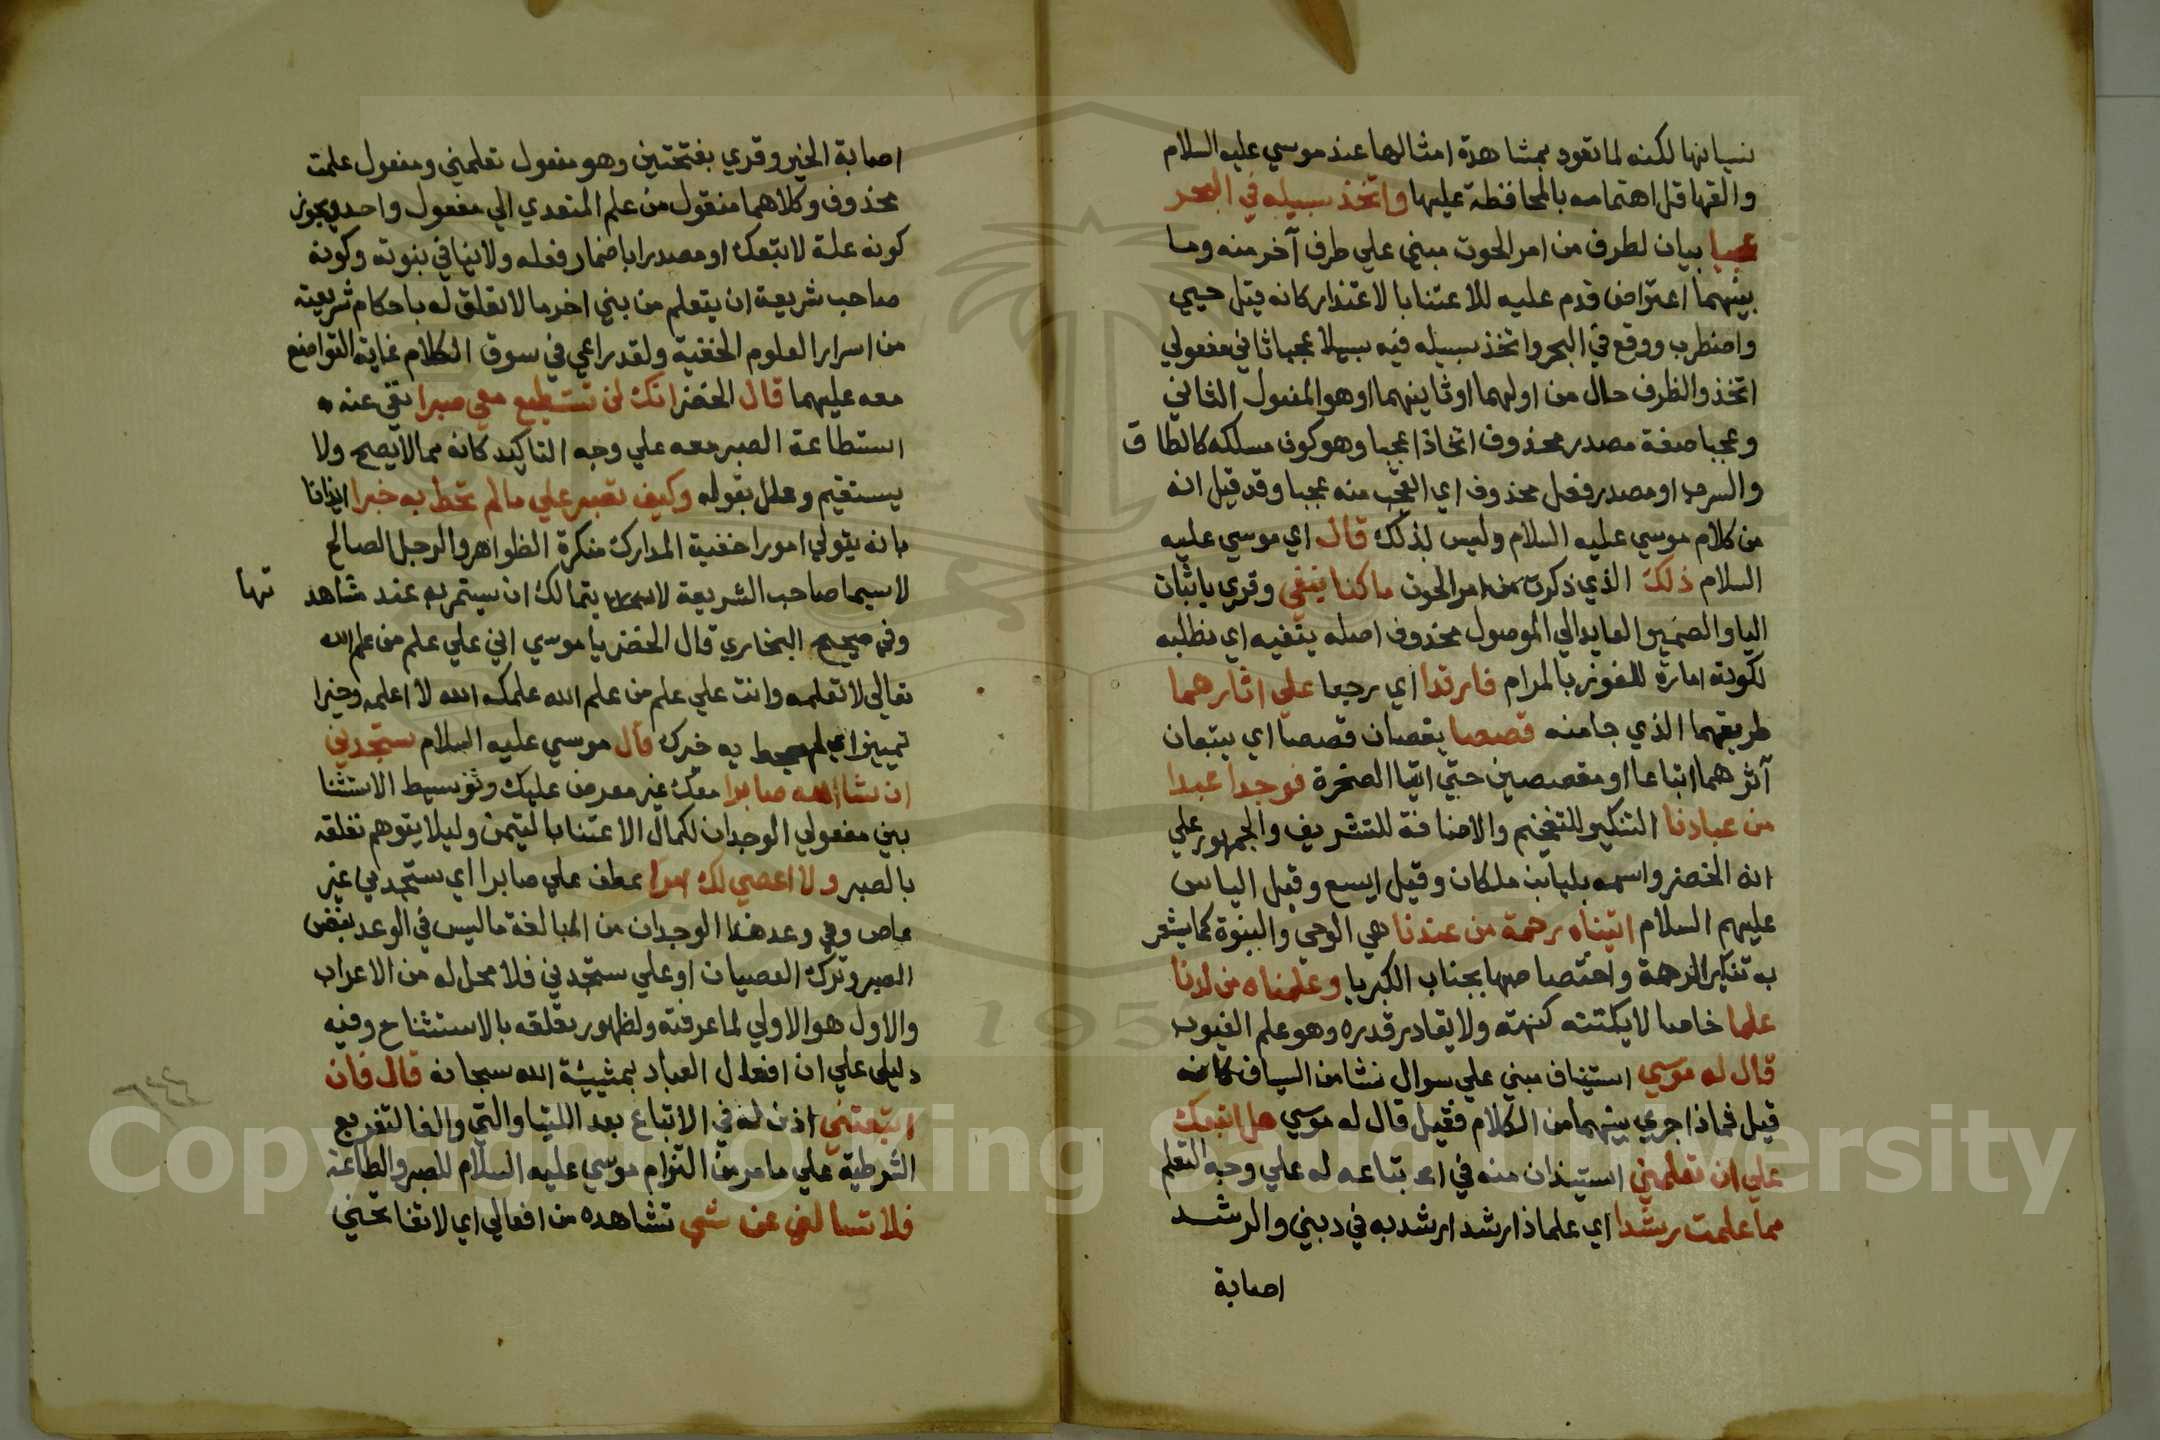 نسيانها لكنه لما تعود بمشاهدة امثالها عند موسي عليه السلام
والقها قل اهتمامه بالمحافظة عليها واتخذ سبيله في البحر
عجبا بيان لطرف من امر الحوت مبني علي طرف آخر منه وما
بينهما اعتراض قدم عليه للاعتنا بالاعتذار كانه قيل حيي
واضطرب ووقع في البحر واتخذ سبيله فيه سبيلا عجبا ثاني مفعولي
اتخذ والظرف حال من اولهما اوثانيهما اوهو المفعول الثاني
وعجبا صفة مصدر محذوف اتخاذا عجبا وهو كون مسلكه كالطاق
والسرب اومصدر فعل محذوف اي اتعجب منه عجبا وقد قيل انه
من كلام موسي عليه السلام وليس بذلك قال اي موسي عليه
السلام ذلك الذي ذكرت من امر الحوت ما كنا نبغي وقري باثبات
اليا والضمير العايد الي الموصول محذوف اصله نبغيه اي نطلبه
لكونه امارة للفوز بالمرام فارتدا اي رجعا علي اثارهما
طريقهما الذي جا منه قصصا يقصان قصصا اي يتبعان
آثرهما اتباعا او مقصصين حتي اتيا الصخرة فوجدا عبدا
من عبادنا التنكير للتفخيم والاضافة للتشريف والجمهور علي
انه الخضر واسمه بليا بن ملكان وقيل ايسع وقيل الياس
عليهم السلام اتيناه رحمة من عندنا هي الوحي والنبوة كما يشعر
به تنكير الرحمة واختصاصها بجناب الكبريا وعلمناه من لدنا
علما خاصا لا يكتنه كنهه ولا يقادر قدره وهو علم الغيوب
قال له موسي استيناف مبني علي سوال نشا من السياق كانه
قيل فماذا جري بينهما من الكلام فقيل قال له موسي هل اتبعك
علي ان تعلمني استيذان منه في اتباعه له علي وجه التعلم
مما علمت رشدا اي علما ذا رشد ارشد به في ديني والرشد
اصابة
اصابة الخير وقري بفتحتين وهو مفعول تعلمني ومفعول علمت
محذوف وكلاهما منقول من علم المتعدي الي مفعول واحد ويجوز
كونه علة لاتبعك اومصدرا باضمار فعله ولا ينافي نبوته وكونه
صاحب شريعة ان يتعلم من نبي اخر ما لا تعلق له باحكام شريعته
من اسرار العلوم الخفية ولقد راعي في سوق الكلام غاية التواضع
معه عليهما قال الخضر انك لن تستطيع معي صبرا نفي عنه
استطاعة الصبر معه علي وجه التاكيد كانه مما لا يصح ولا
يستقيم وعلل بقوله وكيف تصبر علي ما لم تحط به خبرا ايذانا
بانه يتولي امورا خفية المدارك منكرة الظواهر والرجل الصالح
لاسيما صاحب الشريعة لا يتمالك ان يستمر به عند مشاهد تها
وفي صحيح البخاري قال الخضر يا موسي اني علي علم من علم الله
تعالي لا تعلمه وانت علي علم من علم الله علمك الله لا اعلمه وخبرا
تمييز اي لم يحط به خبرك قال موسي عليه السلام ستجدني
ان شا الله صابرا معك غير معرض عليك وتوسيط الاستثنا
بين مفعولي الوجدان لكمال الاعتنا بالتيمن وليلا يتوهم تعلقه
بالصبر ولا اعصي لك امرا عطف علي صابرا اي ستجدني غير
عاص وفي وعد هذا الوجدان من المبالغة ما ليس في الوعد بنفس
الصبر وترك العصيان او علي ستجدني فلا محل له من الاعراب
والاول هو الاولي لما عرفته ولظهور تعلقه بالاستثناح وفيه
دليل علي ان افعال العباد بمشيئة الله سبحانه قال فان
اتبعتني اذن له في الاتباع بعد اللتيا والتي والفا لتفريع
الشرطية علي ما مر من التزام موسي عليه السلام للصبر والطاعة
فلا تسالني عن شي تشاهده من افعالي اي لا تفاتحني
Copyright © King Saud University
195